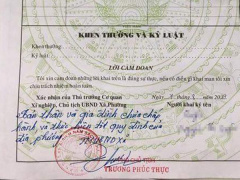 KHEN THƯỞNG VÀ KỶ LUẬT
Khen thưởng:
Kỷ luật:
LỜI CAM ĐOAN
Tôi xin cam đoan những lời khai trên là đúng sự thực, nếu có điều gì khai man tôi xin
chịu trách nhiệm hoàn toàn.
Xác nhận của Thủ trưởng Cơ quan
Xí nghiệp, Chủ tịch UBND Xã, Phường
Người khai ký tên
Bản thân và gia đình chấp
hành, và thực hiện tốt quy định của
địa phương
TRƯƠNG PHÚC THỰC